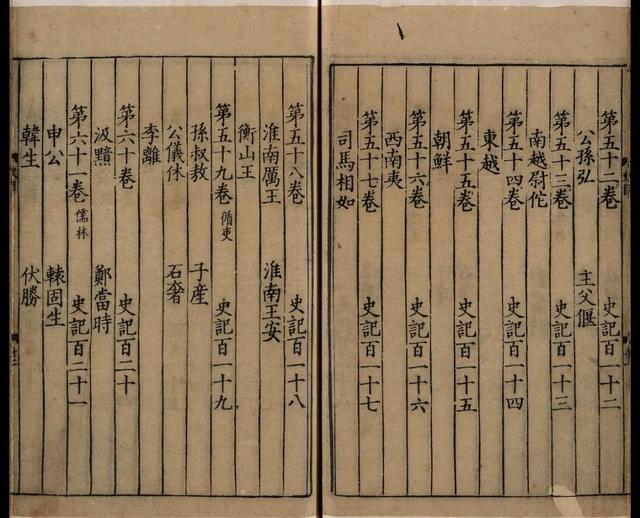 第五十二卷 史記百一十二
公孫弘 主父偃
第五十三卷 史記百一十三
南越尉佗
第五十四卷 史記百一十四
東越
第五十五卷 史記百一十五
朝鮮
第五十六卷 史記百一十六
西南夷
第五十七卷 史記百一十七
司馬相如
第五十八卷 史記百一十八
淮南厲王 淮南王安
衡山王
第五十九卷 循吏 史記百一十九
孫叔敖 子産
公儀休 石奢
李離
第六十卷 史記百二十
汲黯 鄭當時
第六十一卷 儒林 史記百二十一
申公 轅固生
韓生 伏勝